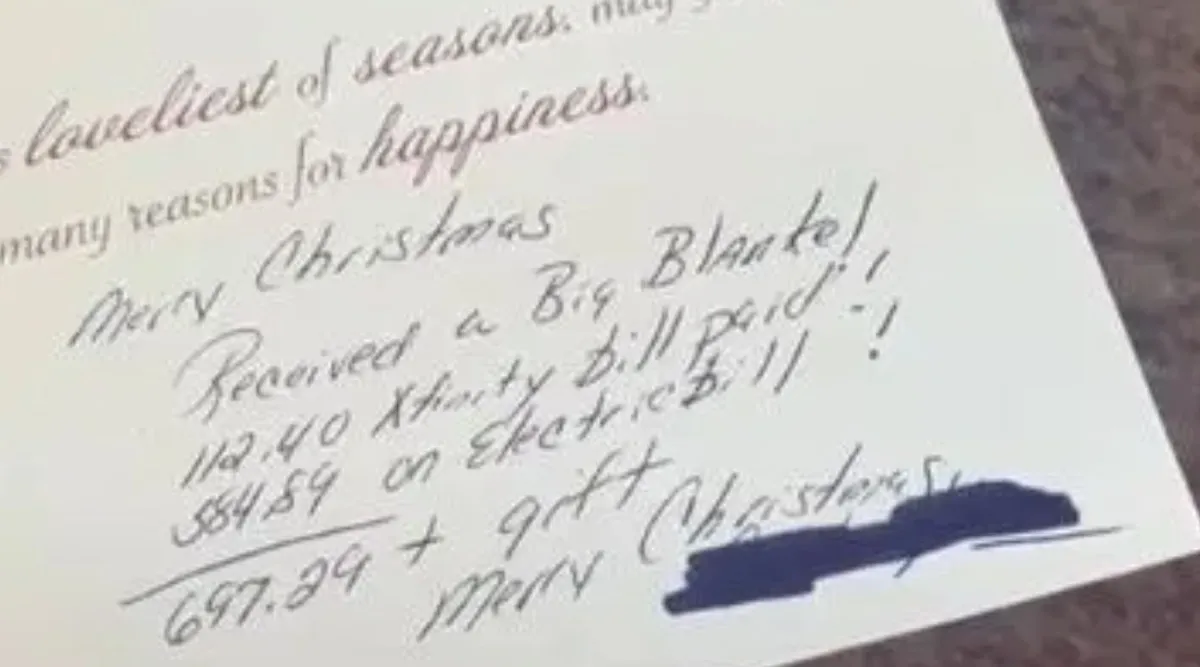 loveliest of seasons, may
many reasons for happiness.
Merry Christmas
Received a Big Blanket
112.40 Xfinity bill paid!
584.89 on Electric Bill!
697.29 + gift
Merry Christmas